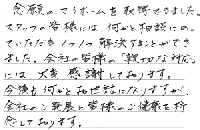 念願のマイホームを取得できました。
スタッフの皆様には、何かと相談にの
っていただき1つ1つ解決することができ
ました。会社の皆様の「親切な対応」
には、大変感謝しております。
今後も何かとお世話になりますが、
会社のご発展と皆様のご健康を祈
念しております。